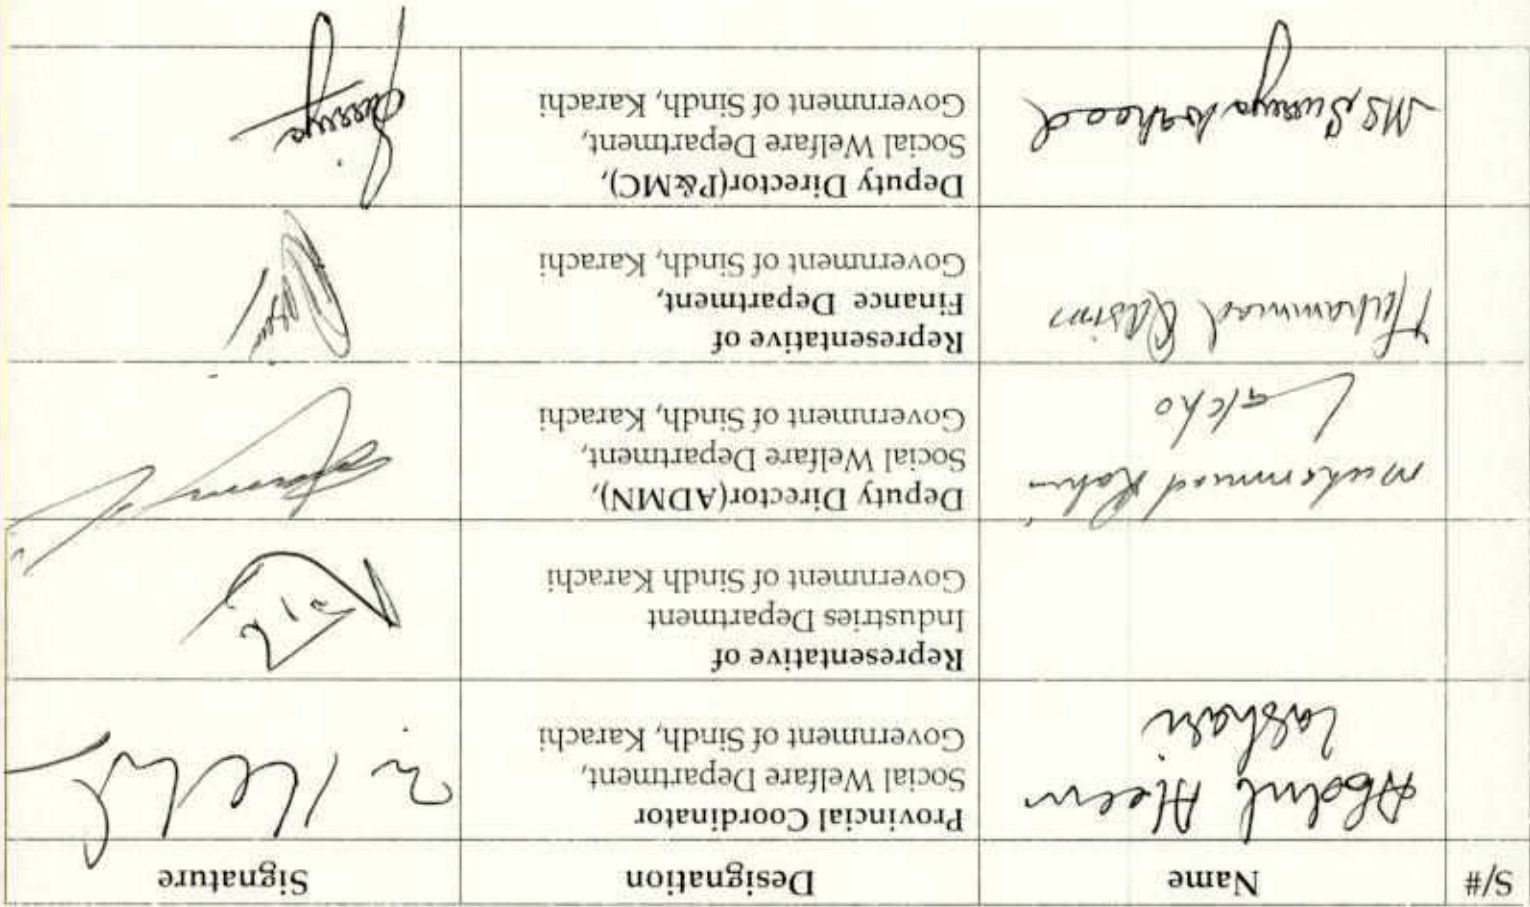 S/# Name Designation Signature
Abdul Aleem
Lashari
Provincial Coordinator
Social Welfare Department,
Government of Sindh, Karachi
Representative of
Industries Department
Government of Sindh Karachi
Muhammad Rahim
Lakho
Deputy Director(ADMN),
Social Welfare Department,
Government of Sindh, Karachi
Muhammad Qasim
Representative of
Finance Department,
Government of Sindh, Karachi
Ms. Surraya
Deputy Director(P&MC),
Social Welfare Department,
Government of Sindh, Karachi